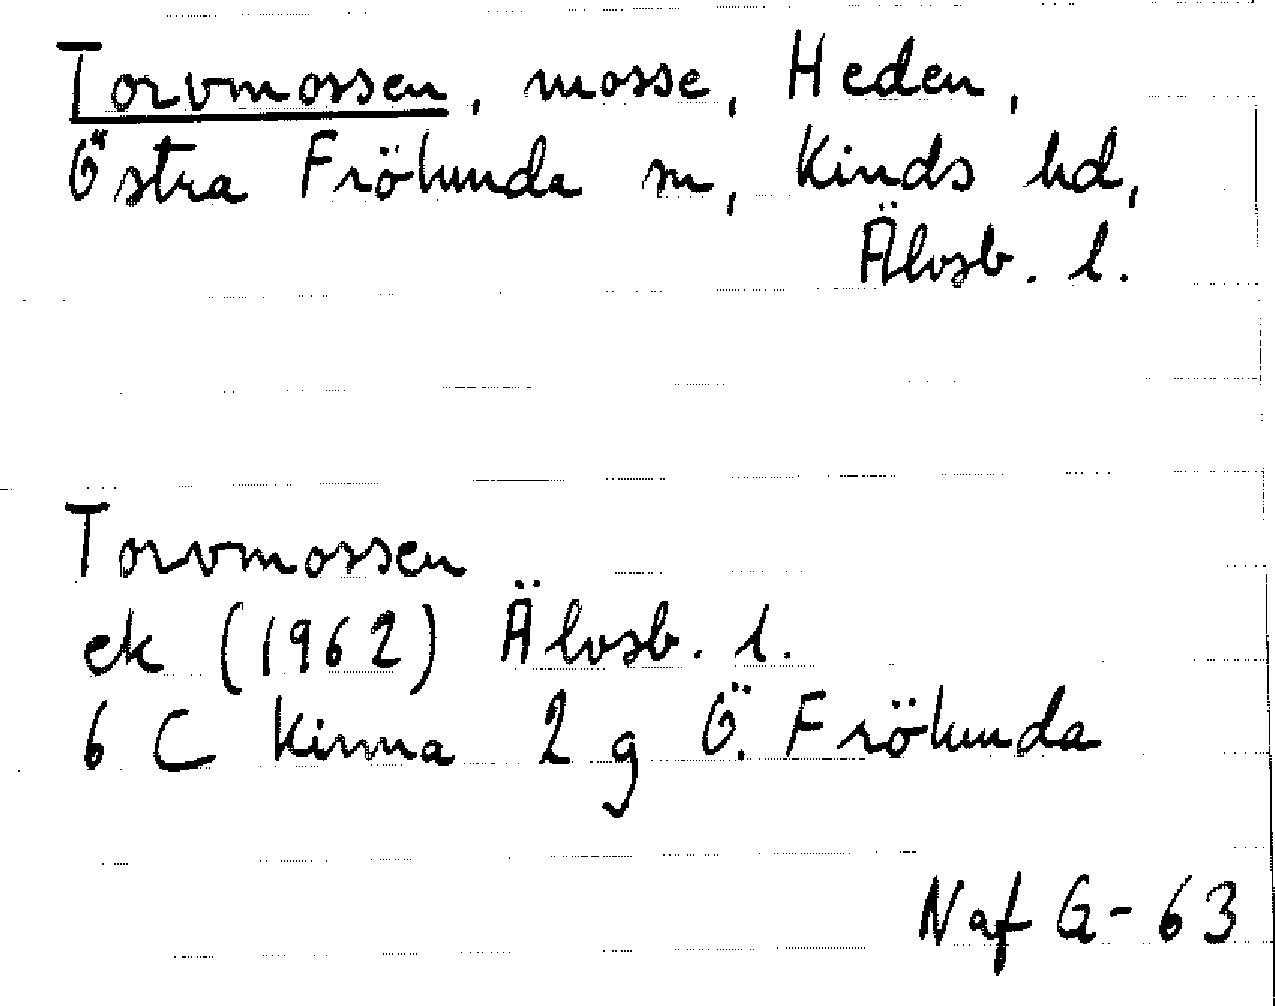 Torvmossen, mosse, Heden,
Östra Frölunda sn, Kinds hd,
Älvsb. l.
Torvmossen
ek (1962) Älvsb. l.
6 C Kinna 2 g Ö. Frölunda
Naf G-63